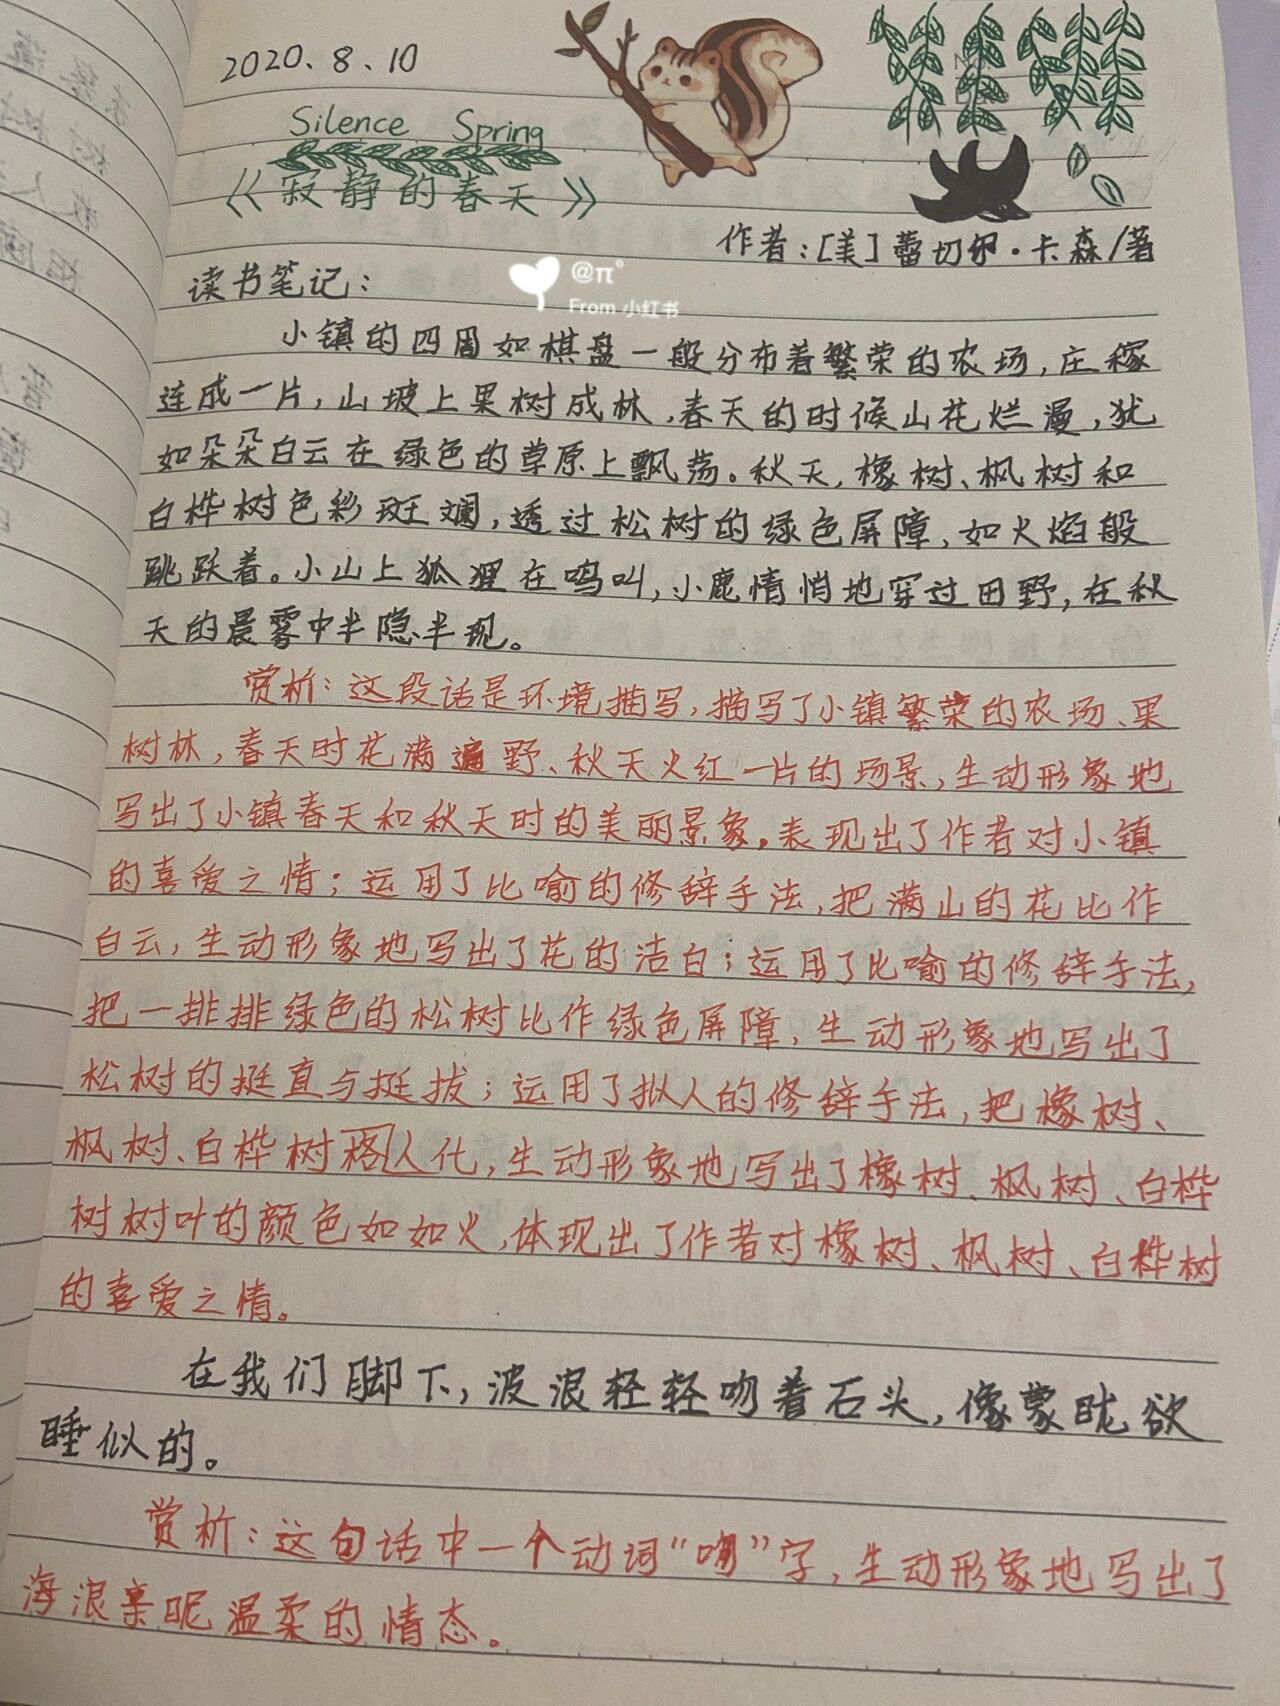 2020.8.10
Silence Spring
《寂静的春天》
作者:[美]蕾切尔·卡森/著
@π°
From 小红书
读书笔记:
小镇的四周如棋盘一般分布着繁荣的农场,庄稼
连成一片,山坡上果树成林,春天的时候山花烂漫,犹
如朵朵白云在绿色的草原上飘荡。秋天,橡树、枫树和
白桦树色彩斑斓,透过松树的绿色屏障,如火焰般
跳跃着。小山上狐狸在鸣叫,小鹿悄悄地穿过田野,在秋
天的晨雾中半隐半现。
赏析:这段话是环境描写,描写了小镇繁荣的农场、果
树林,春天时花满遍野、秋天火红一片的场景,生动形象地
写出了小镇春天和秋天时的美丽景象。表现出了作者对小镇
的喜爱之情;运用了比喻的修辞手法,把满山的花比作
白云,生动形象地写出了花的洁白;运用了比喻的修辞手法,
把一排排绿色的松树比作绿色屏障,生动形象地写出了
松树的挺直与挺拔;运用了拟人的修辞手法,把橡树、
枫树、白桦树人化,生动形象地写出了橡树、枫树、白桦
树树叶的颜色如如火,体现出了作者对橡树、枫树、白桦树
的喜爱之情。
在我们脚下,波浪轻轻吻着石头,像蒙眬欲
睡似的。
赏析:这句话中一个动词“吻”字,生动形象地写出了
海浪亲昵温柔的情态。